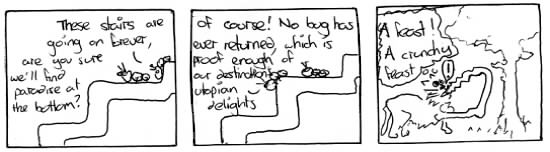 These stairs are
going on forever,
are you sure
we'll find
paradise at
the bottom?
of course! No bug has
ever returned, which is
proof enough of
our destination's
utopian
delights
A feast!
A crunchy
feast
!